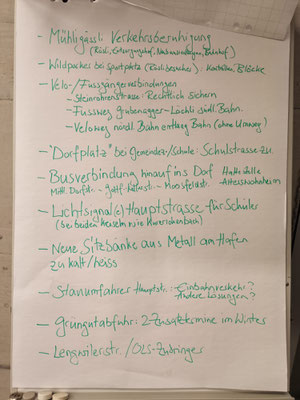 - Mühligässli Verkehrsberuhigung
- Wildparker bei Sportplatz (Rückbesucher). Kontrollen, Blöcke
- Velo-/Fussgängerverbindungen
- Steinrohrenstrasse: Rechtlich sichern
- Fussweg Grubenegger-Löchli südl. Bahn.
- Veloweg nördl. Bahn entlang Bahn (ohne Umweg!)
- "Dorfplatz" bei Gemeinde/Schule: Schulstrasse zu.
- Busverbindung hinauf ins Dorf Haltestelle
Mittl. Dorfstr. - - Altersheim
- Lichtsignal(e) Hauptstrasse für Schüler
(bei beiden Kreiseln
- Neue Sitzbänke aus Metall am Hafen
zu kalt/heiss
- Stauumfahrer Hauptstr.: Einbahnverkehr?
Andere Lösungen?
- Grüngutabfuhr: 2 Zusatztermine im Winter
- Lengwilerstr. / OLS-Zubringer